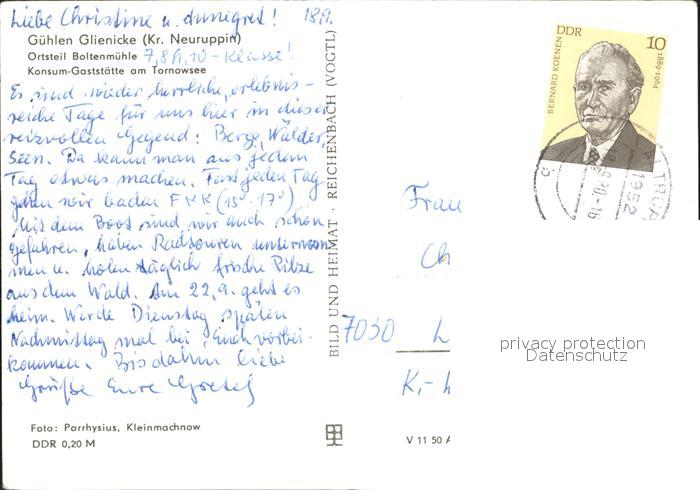 Liebe Christine u. Annegret! 18.9.
Gühlen Glienicke (Kr. Neuruppin)
Ortsteil Boltenmühle 7,8,9,10-Klasse!
Konsum-Gaststätte am Tornowsee
Es sind wieder herrliche, erlebnis-
reiche Tage für uns hier in dieser
reizvollen Gegend: Berge, Wälder
Seen. Da kann man aus jedem
Tag etwas machen. Fast jeden Tag
gehen wir baden FKK (15°-17°)
Mit dem Boot sind wir auch schon
gefahren, haben Radtouren unternom-
men u. holen täglich frische Pilze
aus dem Wald. Am 22.9. geht es
heim. Werde Dienstag späten
Nachmittag mal bei Euch vorbei-
kommen. Bis dahin liebe
Grüße Eure
Foto: Parrhysius, Kleinmachnow
DDR 0,20 M
BILD UND HEIMAT · REICHENBACH (VOGTL)
V 11 50 A
DDR 10
BERNARD KOENEN
1889-1964
1952
Frau
Ch
7030 L
K,-
privacy protection
Datenschutz